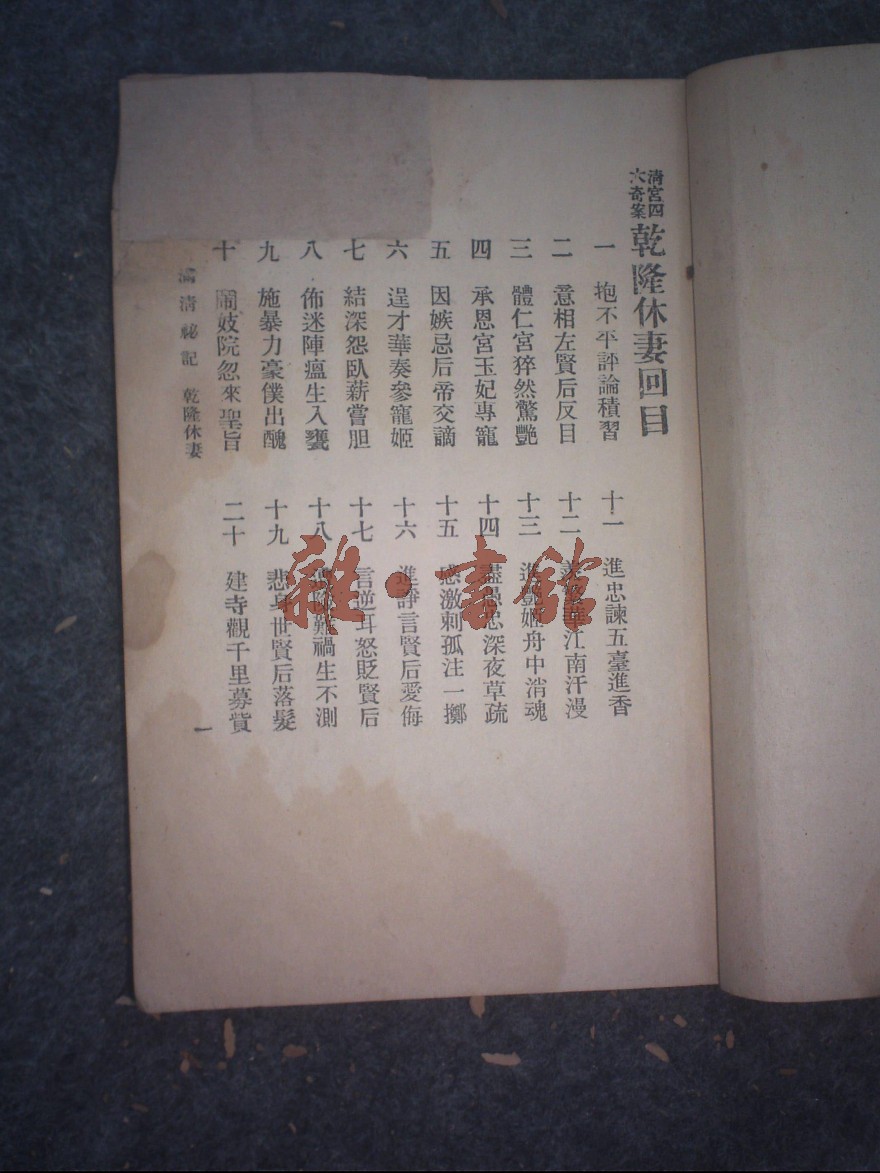 清宮四
大奇案
乾隆休妻回目
一 抱不平評論積習
二 意相左賢后反目
三 體仁宮猝然驚艷
四 承恩宮玉妃專寵
五 因嫉忌后帝交謫
六 逞才華奏參寵姬
七 結深怨臥薪嘗胆
八 佈迷陣瘟生入甕
九 施暴力豪僕出醜
十 鬧妓院忽來聖旨
十一 進忠諫五臺進香
十二 江南汗漫
十三 舟中消魂
十四 盡愚忠深夜草疏
十五 感激刺孤注一擲
十六 進諍言賢后愛侮
十七 言逆耳怒貶賢后
十八 難禍生不測
十九 悲身世賢后落髮
二十 建寺觀千里募貲
滿清祕記 乾隆休妻
一
雜·書館